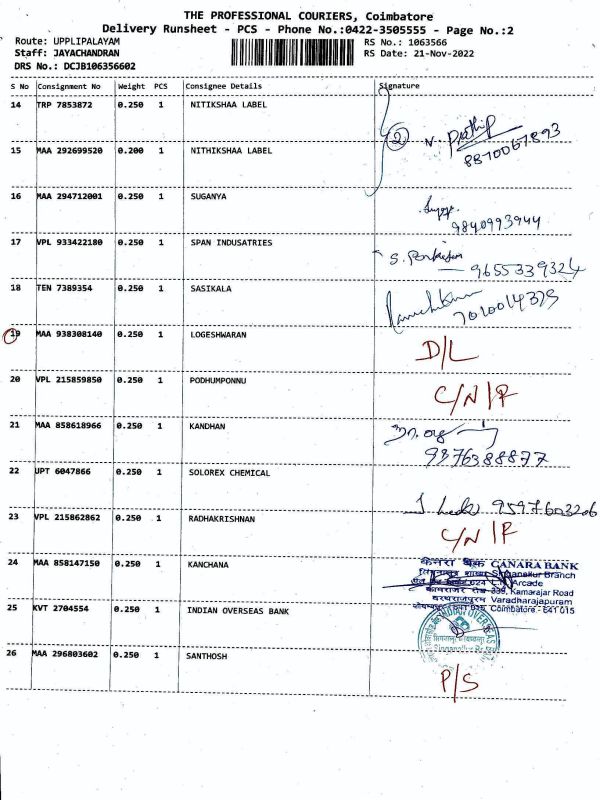 THE PROFESSIONAL COURIERS, Coimbatore
Delivery Runsheet - PCS - Phone No.:0422-3505555 - Page No.:2
Route: UPPLIPALAYAM
RS No.: 1063566
Staff: JAYACHANDRAN
RS Date: 21-Nov-2022
DRS No.: DCJB106356602
S No Consignment No Weight PCS Consignee Details Signature
14 TRP 7853872 0.250 1 NITIKSHAA LABEL
2 N.
8870067893
15 MAA 292699520 0.200 1 NITHIKSHAA LABEL
16 MAA 294712001 0.250 1 SUGANYA
9840993944
17 VPL 933422180 0.250 1 SPAN INDUSATRIES
S.
9655339324
18 TEN 7389354 0.250 1 SASIKALA
7010014375
19 MAA 938308140 0.250 1 LOGESHWARAN
D/L
20 VPL 215859850 0.250 1 PODHUMPONNU
C/N/R
21 MAA 858618966 0.250 1 KANDHAN
9976388877
22 UPT 6047866 0.250 1 SOLOREX CHEMICAL
9597603206
23 VPL 215862862 0.250 1 RADHAKRISHNAN
C/N/R
24 MAA 858147150 0.250 1 KANCHANA
केनरा बैंक CANARA BANK
Branch
Arcade
Kamarajar Road
Varadharajapuram
Coimbatore - 641 015
25 KVT 2704554 0.250 1 INDIAN OVERSEAS BANK
INDIAN OVERSEAS
26 MAA 296803602 0.250 1 SANTHOSH
P/S